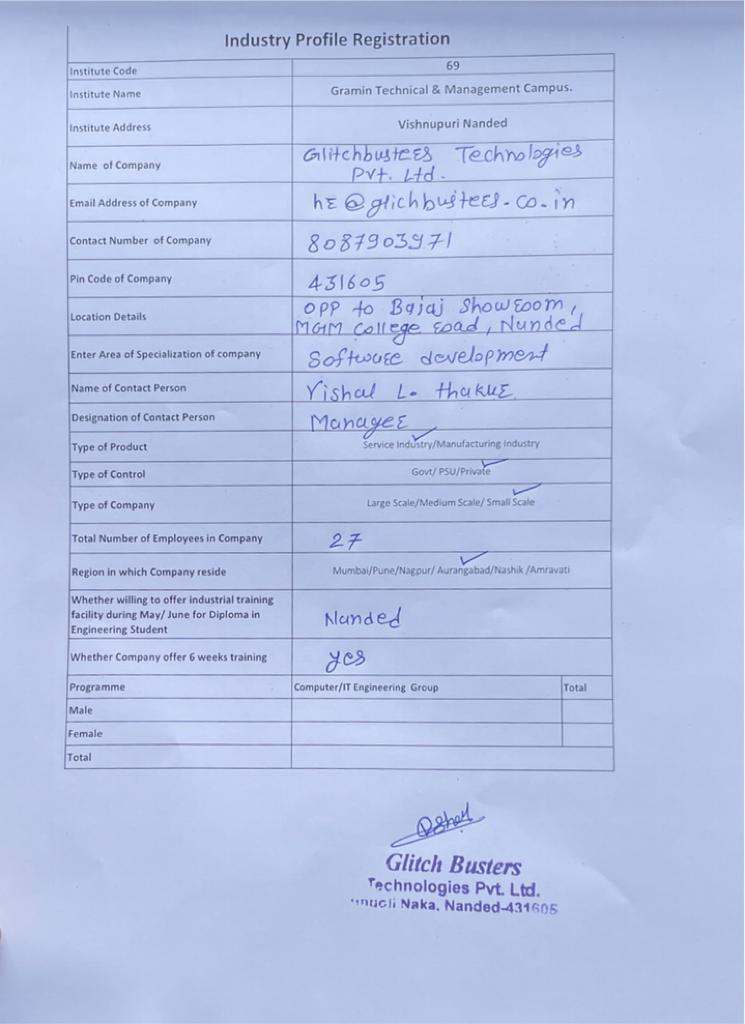 Industry Profile Registration
Institute Code 69
Institute Name Gramin Technical & Management Campus.
Institute Address Vishnupuri Nanded
Name of Company Glitchbusters Technologies
Pvt. Ltd.
Email Address of Company hr@glichbusters.co.in
Contact Number of Company 8087903971
Pin Code of Company 431605
Location Details OPP to Bajaj Showroom,
MGM College road, Nanded
Enter Area of Specialization of company Software development
Name of Contact Person Vishal L. thakur
Designation of Contact Person Manager
Type of Product Service Industry/Manufacturing Industry
Type of Control Govt/ PSU/Private
Type of Company Large Scale/Medium Scale/ Small Scale
Total Number of Employees in Company 27
Region in which Company reside Mumbai/Pune/Nagpur/ Aurangabad/Nashik /Amravati
Whether willing to offer industrial training
facility during May/ June for Diploma in
Engineering Student Nanded
Whether Company offer 6 weeks training yes
Programme Computer/IT Engineering Group Total
Male
Female
Total
Glitch Busters
Technologies Pvt. Ltd.
Naka, Nanded-431605